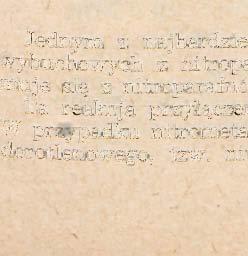 Jednym z najbardzie
wybuchowych z nitropa
muje się z nitroparafin
Ta reakcja przyłącze
w przypadku nitrometa
dorotlenowego, tzw. ni